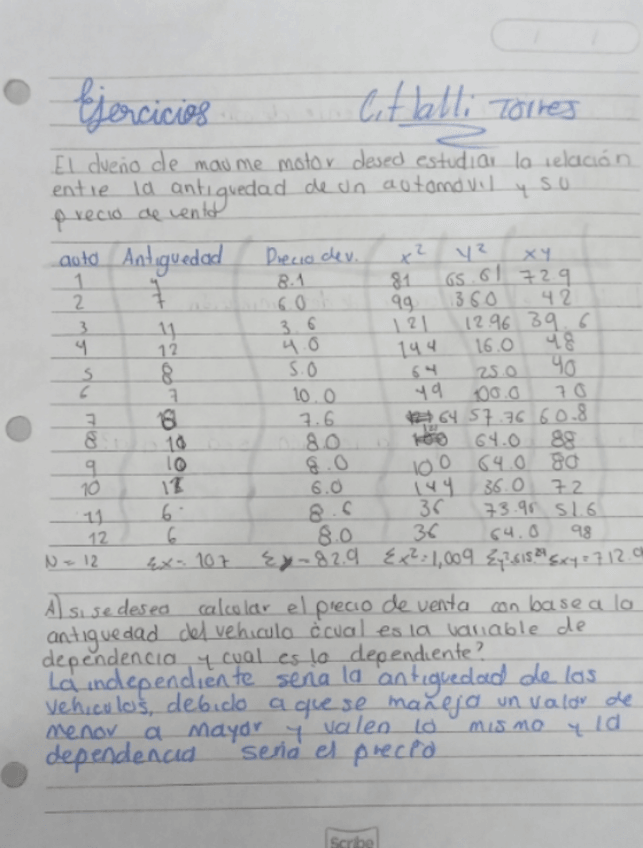 Ejercicios Citlalli Torres
El dueño de maume motor deseo estudiar la relación
entre la antiguedad de un automovil y su
precio de venta
auto Antiguedad Precio dev. x² y² xy
1 8.1 81 65.61 72.9
2 7 6.0 49 36.0 42
3 11 3.6 121 12.96 39.6
4 12 4.0 144 16.0 48
5 8 5.0 64 25.0 40
6 7 10.0 49 100.0 70
7 8 7.6 64 57.76 60.8
8 8.0 64.0 88
9 10 8.0 100 64.0 80
10 12 6.0 144 36.0 72
11 6 8.6 36 73.96 51.6
12 6 8.0 36 64.0 98
N = 12 Σx = 107 Σy = 82.9 Σx² = 1,009 Σy² = 615.29 Σxy = 712.9
A) si se desea calcular el precio de venta con base a la
antiguedad del vehiculo ¿cual es la variable de
dependencia y cual es la dependiente?
La independiente seria la antiguedad de los
vehiculos, debido a que se maneja un valor de
menor a mayor y valen lo mismo y la
dependencia seria el precio
Scribe